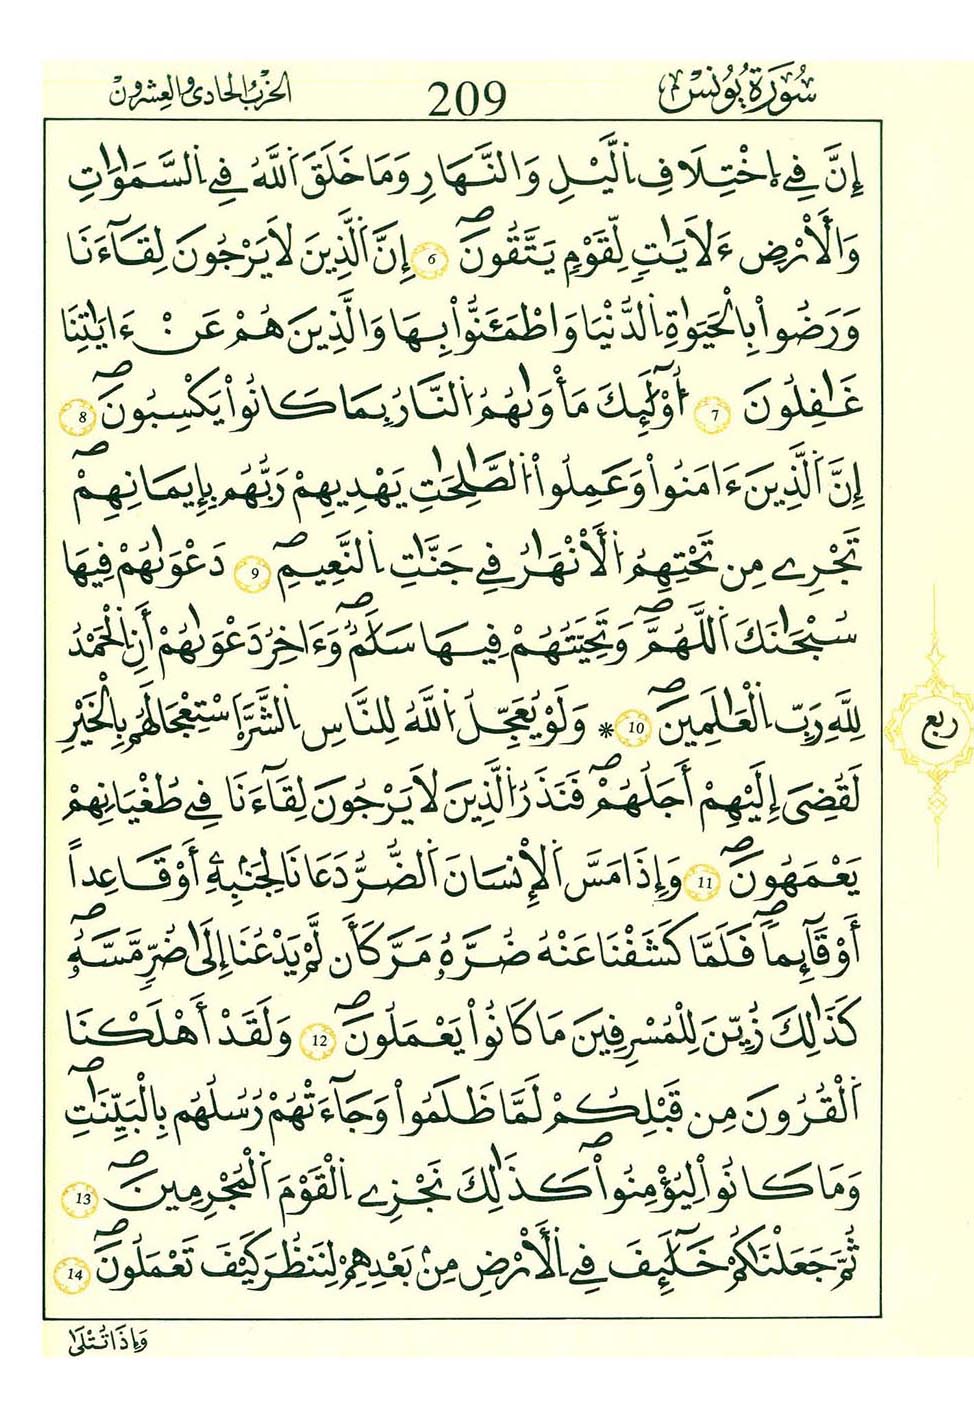 سُورَةُ يُونُسَ
209
الحِزْبُ الحَادِي وَالعِشْرُونَ
إِنَّ فِے اِ۪خْتِلَٰفِ اِ۬ليْلِ وَالنَّهَارِ وَمَا خَلَقَ اَ۬للَّهُ فِے اِ۬لسَّمَٰوَٰتِ
وَالْأَرْضِ ءَلَايَٰتٖ لِّقَوْمٖ يَتَّقُونَۖ 6 إِنَّ اَ۬لذِينَ لَا يَرْجُونَ لِقَآءَنَا
وَرَضُواْ بِالْحَيَوٰةِ اِ۬لدُّنْيَا وَاطْمَأَنُّواْ بِهَا وَالذِينَ هُمْ عَنْ ءَايَٰتِنَا
غَٰفِلُونَ 7 أُوْلَٰٓئِكَ مَأْوَٰهُمُ اُ۬لنَّارُ بِمَا كَانُواْ يَكْسِبُونَۖ 8
إِنَّ اَ۬لذِينَ ءَامَنُواْ وَعَمِلُواْ اُ۬لصَّٰلِحَٰتِ يَهْدِيهِمْ رَبُّهُم بِإِيمَانِهِمْۖ
تَجْرِے مِن تَحْتِهِمُ اُ۬لْأَنْهَٰرُ فِے جَنَّٰتِ اِ۬لنَّعِيمِۖ 9 دَعْوَٰهُمْ فِيهَا
سُبْحَٰنَكَ اَ۬للَّهُمَّۖ وَتَحِيَّتُهُمْ فِيهَا سَلَٰمٞۖ وَءَاخِرُ دَعْوَٰهُمْ أَنِ اِ۬لْحَمْدُ
لِلهِ رَبِّ اِ۬لْعَٰلَمِينَۖ 10 * وَلَوْ يُعَجِّلُ اُ۬للَّهُ لِلنَّاسِ اِ۬لشَّرَّ اَ۪سْتِعْجَالَهُم بِالْخَيْرِ
لَقُضِيَ إِلَيْهِمْ أَجَلُهُمْۖ فَنَذَرُ اُ۬لذِينَ لَا يَرْجُونَ لِقَآءَنَا فِے طُغْيَٰنِهِمْ
يَعْمَهُونَۖ 11 وَإِذَا مَسَّ اَ۬لْإِنسَٰنَ اَ۬لضُّرُّ دَعَانَا لِجَنۢبِهِۦٓ أَوْ قَاعِداً
أَوْ قَآئِماٗۖ فَلَمَّا كَشَفْنَا عَنْهُ ضُرَّهُۥ مَرَّ كَأَن لَّمْ يَدْعُنَا إِلَىٰ ضُرّٖ مَّسَّهُۥۖ
كَذَٰلِكَ زُيِّنَ لِلْمُسْرِفِينَ مَا كَانُواْ يَعْمَلُونَۖ 12 وَلَقَدْ أَهْلَكْنَا
اَ۬لْقُرُونَ مِن قَبْلِكُمْ لَمَّا ظَلَمُواْ وَجَآءَتْهُمْ رُسُلُهُم بِالْبَيِّنَٰتِۖ
وَمَا كَانُواْ لِيُؤْمِنُواْۖ كَذَٰلِكَ نَجْزِے اِ۬لْقَوْمَ اَ۬لْمُجْرِمِينَۖ 13
ثُمَّ جَعَلْنَٰكُمْ خَلَٰٓئِفَ فِے اِ۬لْأَرْضِ مِنۢ بَعْدِهِمْ لِنَنظُرَ كَيْفَ تَعْمَلُونَۖ 14
ربع
وَإِذَا تُتْلَىٰ